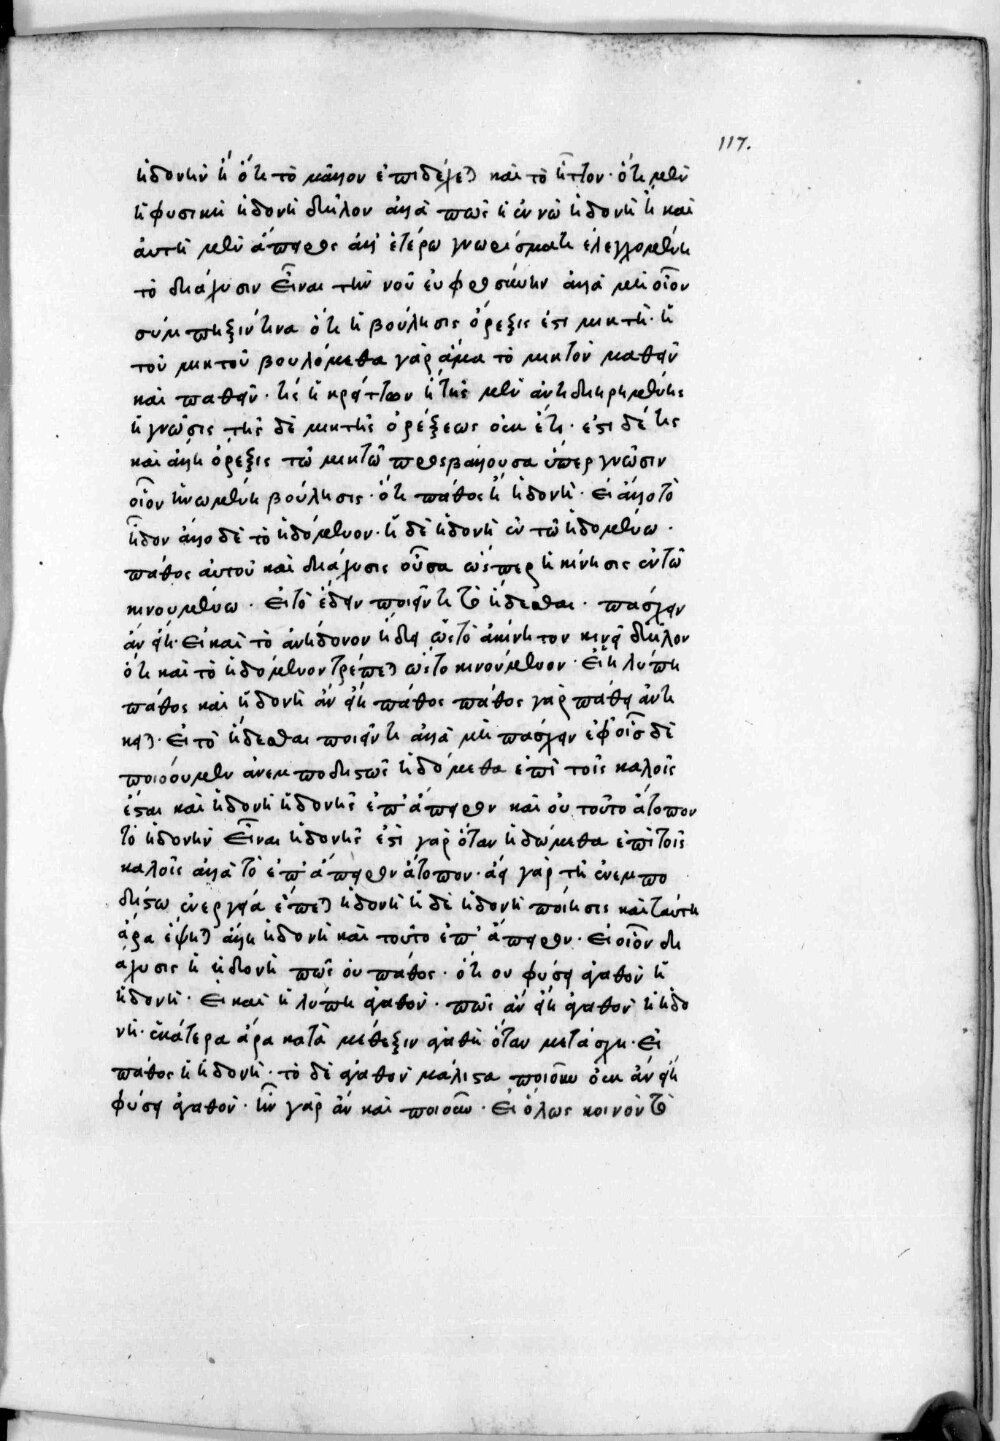 117.
ἡδονὴν ἢ ὅτι τὸ μᾶλλον ἐπιδέχεται καὶ τὸ ἧττον· ὅτι μὲν
ἡ φυσικὴ ἡδονὴ δῆλον ἀλλὰ πῶς ἡ ἐν νῶ ἡδονὴ ἢ καὶ
ἀυτὴ μὲν ἄπειρος ἀλλ' ἑτέρω γνωρίσματι ἐλεγχομένη
τὸ διάχυσιν εἶναι τὴν νοῦ ἐυφροσύνην ἀλλὰ μὴ οἷον
σύμπηξιν τινα ὅτι ἡ βούλησις ὄρεξις ἐστι μικτὴ· ἢ
τοῦ μικτοῦ βουλόμεθα γὰρ ἅμα τὸ μικτὸν μαθεῖν
καὶ παθεῖν· τίς ἡ κρείττων ἢ τῆς μὲν ἀντιδιηρημένης
ἡ γνῶσις τῆς δὲ μικτῆς ὀρέξεως ὀυκ ἔτι· ἔστι δέ τις
καὶ ἄλλη ὄρεξις τῶ μικτῶ προσβάλλουσα ὑπερ γνῶσιν
οἷον ἡνωμένη βούλησις· ὅτι πάθος ἡ ἡδονὴ· ἐι ἄλλο τὸ
ἧδον ἄλλο δὲ τὸ ἡδόμενον· ἡ δὲ ἡδονὴ ἐν τῶ ἡδομένω·
πάθος ἀυτοῦ καὶ διάχυσις οὖσα ὥσπερ ἡ κίνησις ἐν τῶ
κινουμένω· ἐι τὸ ἕδειν ποιεῖν τι τὸ ἥδεσθαι· πάσχειν
ἂν εἴη· ἐι καὶ τὸ ἀνήδονον ἥδει ὡς τὸ ἀκίνητον κινεῖ δῆλον
ὅτι καὶ τὸ ἡδόμενον τρέπεται ὡς το κινούμενον· ἐι ἡ λύπη
πάθος καὶ ἡ δονὴ ἂν εἴη πάθος πάθος γὰρ πάθει ἀντι
κεῖται· ἐι τὸ ἥδεσθαι ποιεῖν τι ἀλλὰ μὴ πάσχειν ἐφ' οἷς δὲ
ποιοόυμεν ἀνεμποδίστως ἡδόμεθα ἐπὶ τοῖς καλοῖς
ἔσται καὶ ἡδονὴ ἡδονῆς ἐπ' ἄπειρον καὶ ὀυ τοῦτο ἄτοπον
τὸ ἡδονὴν εἶναι ἡδονῆς ἔστι γὰρ ὅταν ἡδώμεθα ἐπὶ τοῖς
καλοῖς ἀλλὰ τὸ ἐπ' ἄπειρον ἄτοπον· ἀεὶ γὰρ τῆ ἀνεμπο
δίστω ἐνεργεία ἕπεται ἡδονὴ ἡ δὲ ἡδονὴ ποίησις καὶ ταύτη
ἄρα ἕψεται ἄλλη ἡδονὴ καὶ τοῦτο ἐπ' ἄπειρον· ἐι οἷον δι
άχυσις ἡ ἡδονὴ πῶς ὀυ πάθος· ὅτι ου φύσει ἀγαθὸν ἡ
ἡδονὴ· ἐι καὶ ἡ λύπη ἀγαθὸν· πῶς ἂν εἴη ἀγαθὸν ἡ ἡδο
νὴ· ἑκάτερα ἄρα κατὰ μέθεξιν ἀγαθὴ ὅταν μετάσχη· ἐι
πάθος ἡ ἡδονὴ· τὸ δὲ ἀγαθὸν μάλιστα ποιοῦν ὀυκ ἂν εἴη
φύσει ἀγαθὸν· ἦν γὰρ ἂν καὶ ποιοῦν· ἐι ὅλως κοινὸν τὸ